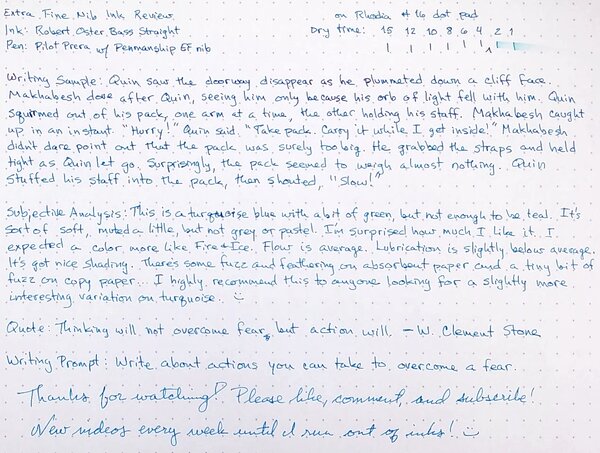 Extra Fine Nib Ink Review
on Rhodia #16 dot pad
Ink: Robert Oster Bass Straight
Dry time: 15 12 10 8 6 4 2 1
Pen: Pilot Prera w/ Penmanship EF nib
Writing Sample: Quin saw the doorway disappear as he plummeted down a cliff face.
Makhabesh dove after Quin, seeing him only because his orb of light fell with him. Quin
squirmed out of his pack, one arm at a time, the other holding his staff. Makhabesh caught
up in an instant. "Hurry!" Quin said. "Take pack. Carry it while I get inside!" Makhabesh
didn't dare point out that the pack was surely too big. He grabbed the straps and held
tight as Quin let go. Surprisingly, the pack seemed to weigh almost nothing. Quin
stuffed his staff into the pack, then shouted, "Slow!"
Subjective Analysis: This is a turquoise blue with a bit of green, but not enough to be teal. It's
sort of soft, muted a little, but not grey or pastel. I'm surprised how much I like it. I
expected a color more like Fire + Ice. Flow is average. Lubrication is slightly below average.
It's got nice shading. There's some fuzz and feathering on absorbent paper and a tiny bit of
fuzz on copy paper... I highly recommend this to anyone looking for a slightly more
interesting variation on turquoise. :)
Quote: Thinking will not overcome fear, but action will. - W. Clement Stone
Writing Prompt: Write about actions you can take to overcome a fear.
Thanks for watching! Please like, comment, and subscribe!
New videos every week until I run out of inks! :)